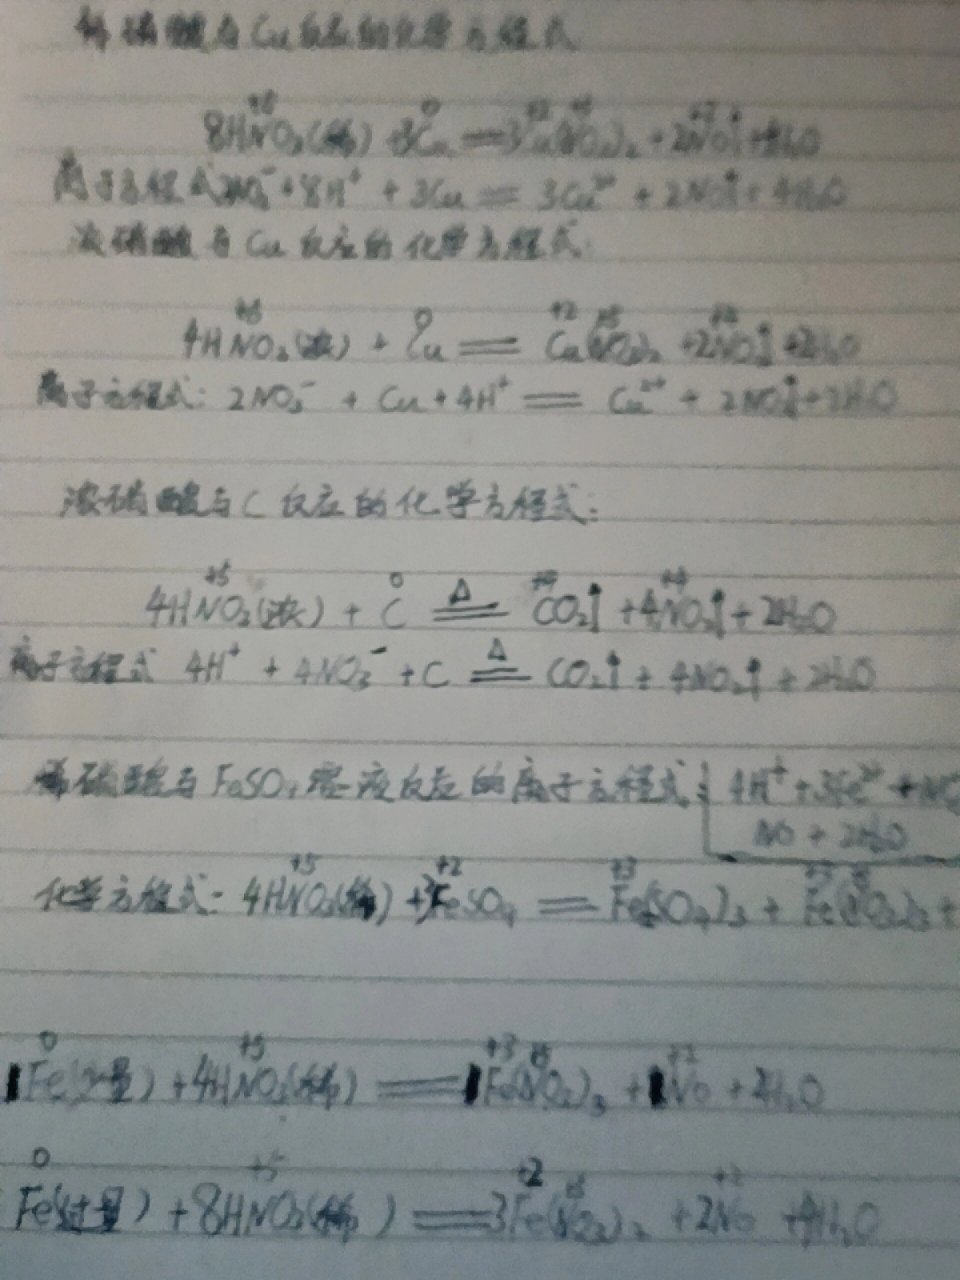 稀硝酸与Cu反应的化学方程式
+5 0 +2 +5 +2
8HNO₃(稀) + 3Cu = 3Cu(NO₃)₂ + 2NO↑ + 4H₂O
离子方程式 2NO₃⁻ + 8H⁺ + 3Cu = 3Cu²⁺ + 2NO↑ + 4H₂O
浓硝酸与Cu反应的化学方程式:
+5 0 +2 +5 +4
4HNO₃(浓) + Cu = Cu(NO₃)₂ + 2NO₂↑ + 2H₂O
离子方程式: 2NO₃⁻ + Cu + 4H⁺ = Cu²⁺ + 2NO₂↑ + 2H₂O
浓硝酸与C反应的化学方程式:
+5 0 +4 +4
4HNO₃(浓) + C =△= CO₂↑ + 4NO₂↑ + 2H₂O
离子方程式 4H⁺ + 4NO₃⁻ + C =△= CO₂↑ + 4NO₂↑ + 2H₂O
稀硝酸与FeSO₄溶液反应的离子方程式: 4H⁺ + 3Fe²⁺ + NO₃
NO + 2H₂O
+5 +2 +3 +3 +5
化学方程式: 4HNO₃(稀) + 3FeSO₄ = Fe₂(SO₄)₃ + Fe(NO₃)₃ +
0 +5 +3 +5 +2
Fe(少量) + 4HNO₃(稀) = Fe(NO₃)₃ + NO + 2H₂O
0 +5 +2 +5 +2
Fe(过量) + 8HNO₃(稀) = 3Fe(NO₃)₂ + 2NO + 4H₂O